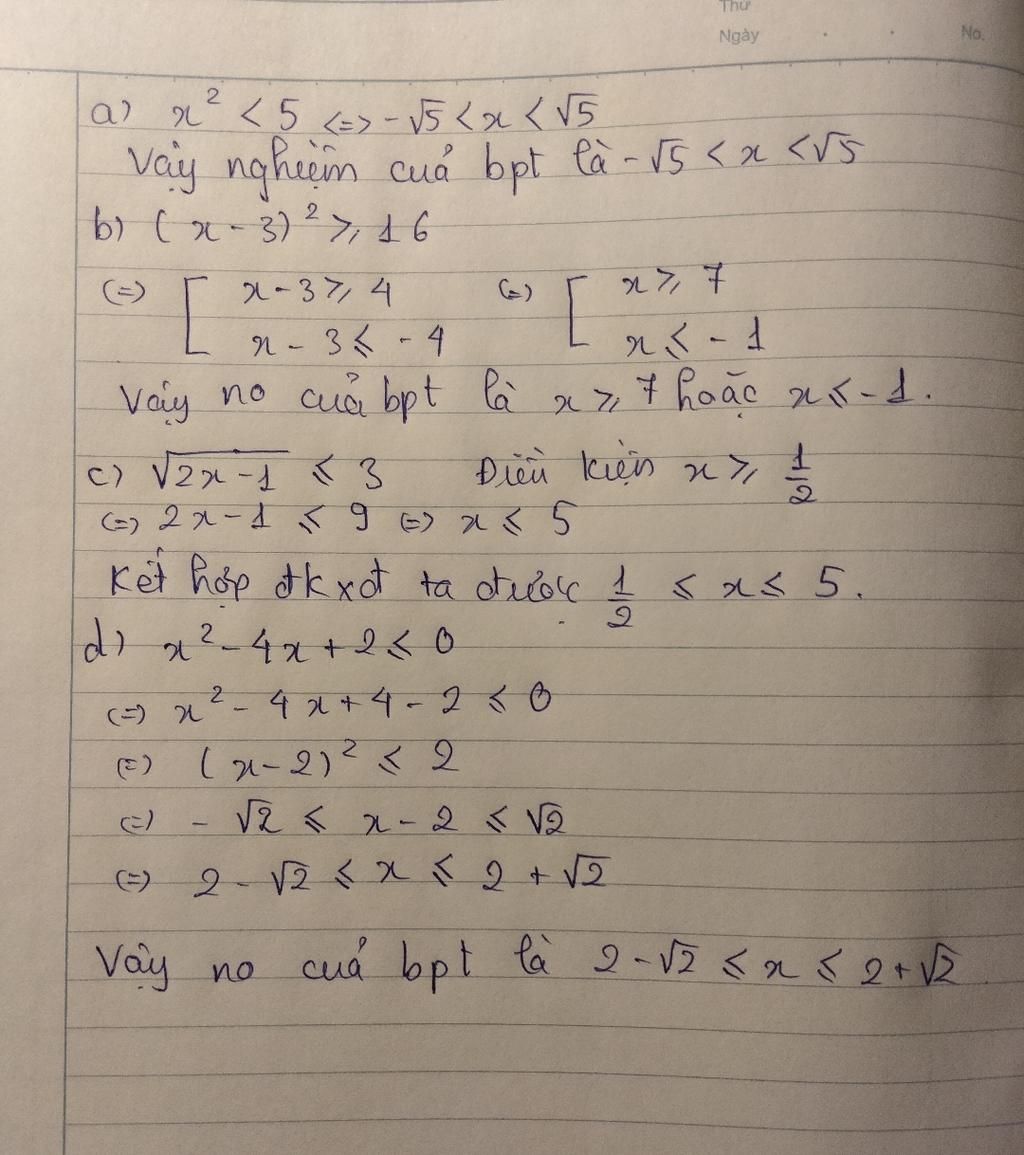 Thứ
Ngày . . No.
a) x² < 5 <=> -√5 < x < √5
Vậy nghiệm của bpt là -√5 < x < √5
b) (x - 3)² ⩾ 16
(=) [ x - 3 ⩾ 4 (=) [ x ⩾ 7
x - 3 ⩽ - 4 x ⩽ - 1
Vậy no của bpt là x ⩾ 7 hoặc x ⩽ -1.
c) √(2x - 1) ⩽ 3 Điều kiện x ⩾ 1/2
(=) 2x - 1 ⩽ 9 (=) x ⩽ 5
Kết hợp đkxđ ta được 1/2 ⩽ x ⩽ 5.
d) x² - 4x + 2 ⩽ 0
(=) x² - 4x + 4 - 2 ⩽ 0
(=) (x - 2)² ⩽ 2
(=) - √2 ⩽ x - 2 ⩽ √2
(=) 2 - √2 ⩽ x ⩽ 2 + √2
Vậy no của bpt là 2 - √2 ⩽ x ⩽ 2 + √2